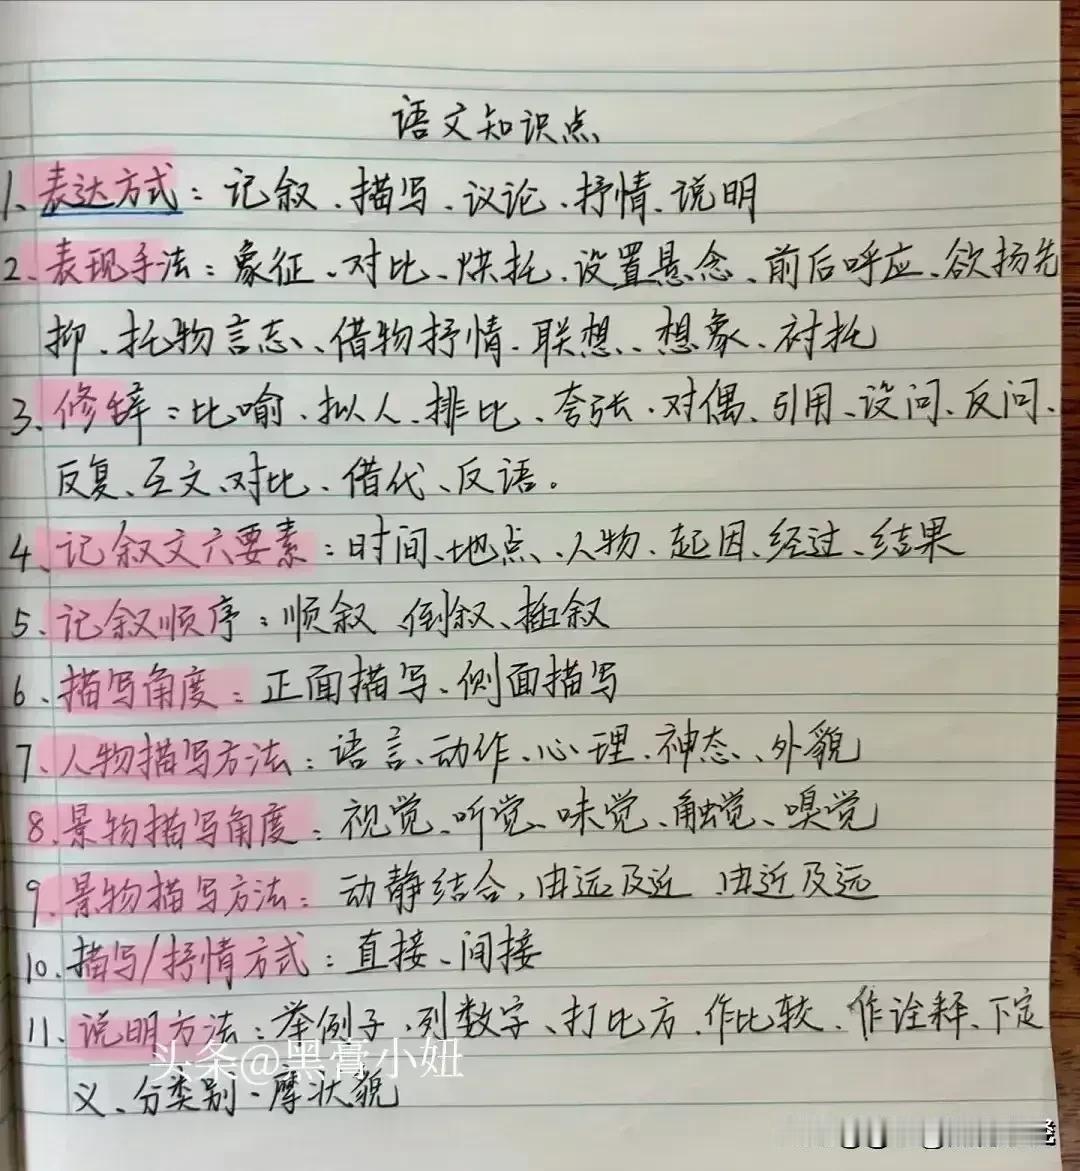 语文知识点
1、表达方式：记叙、描写、议论、抒情、说明
2、表现手法：象征、对比、烘托、设置悬念、前后呼应、欲扬先
抑、托物言志、借物抒情、联想、想象、衬托
3、修辞：比喻、拟人、排比、夸张、对偶、引用、设问、反问、
反复、互文、对比、借代、反语。
4、记叙文六要素：时间、地点、人物、起因、经过、结果
5、记叙顺序：顺叙 倒叙、插叙
6、描写角度：正面描写、侧面描写
7、人物描写方法：语言、动作、心理、神态、外貌
8、景物描写角度：视觉、听觉、味觉、触觉、嗅觉
9、景物描写方法：动静结合，由远及近 由近及远
10、描写/抒情方式：直接、间接
11、说明方法：举例子、列数字、打比方、作比较、作诠释、下定
头条@黑膏小妞
义、分类别、摩状貌